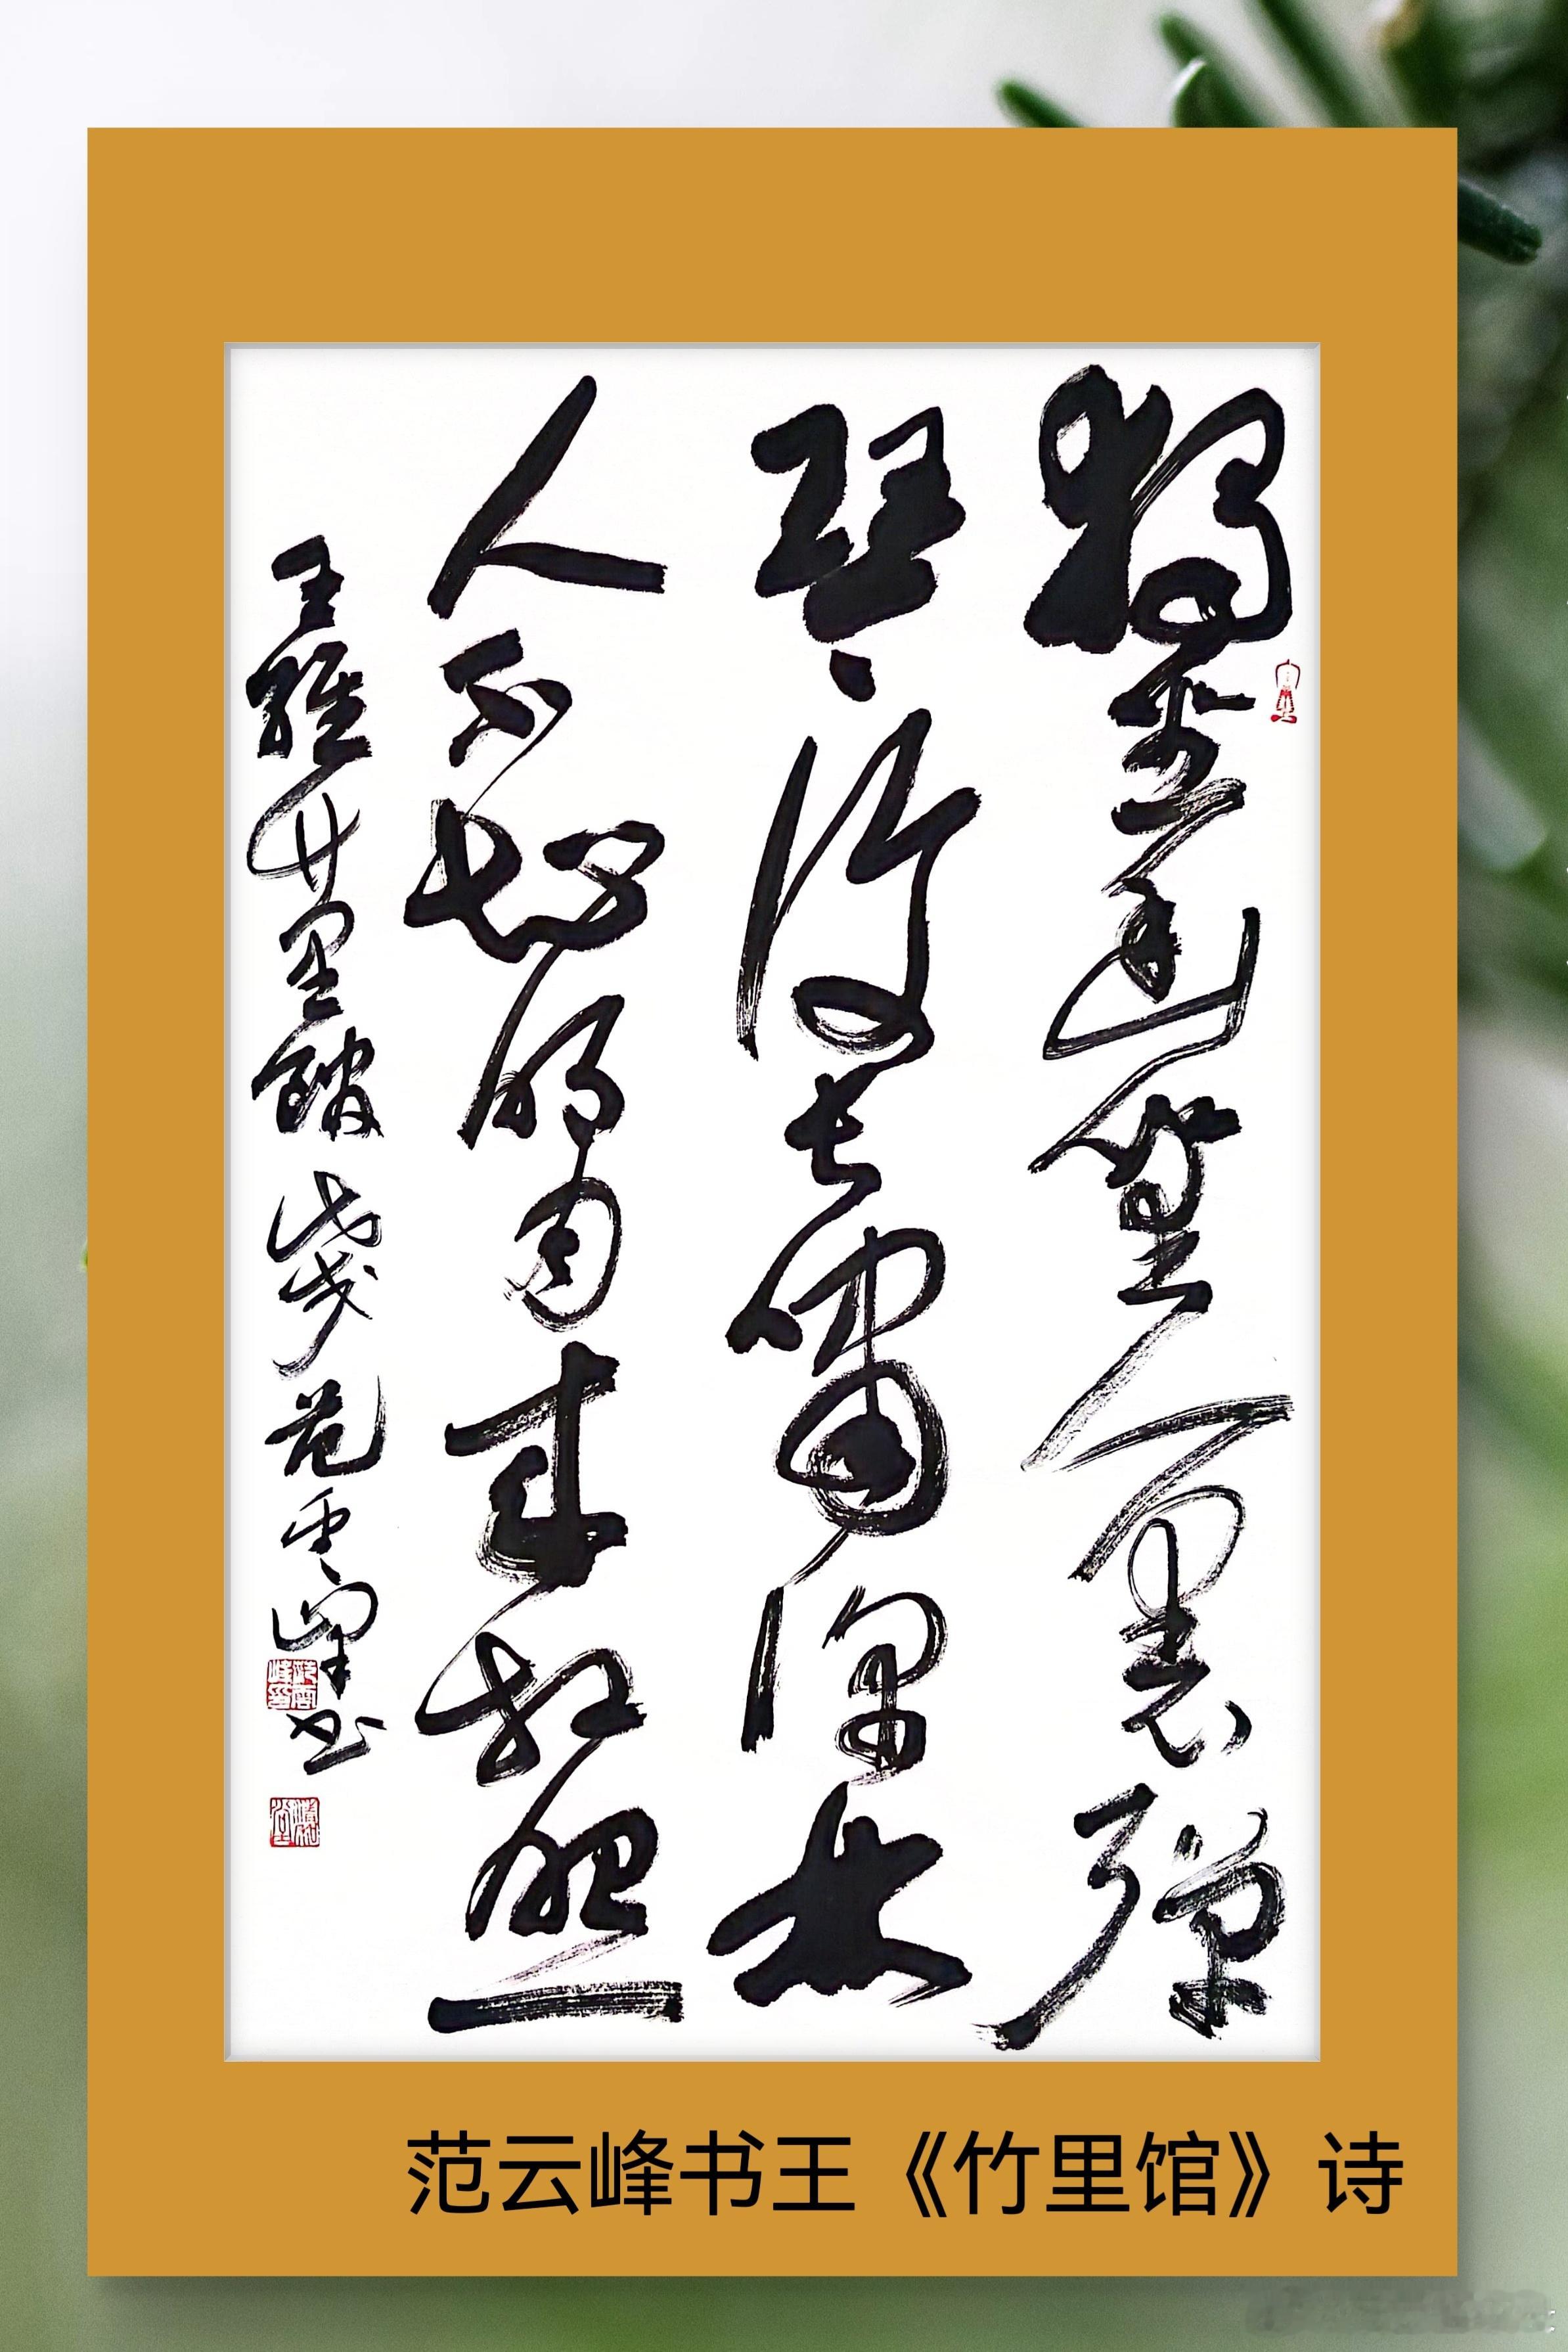 獨坐幽篁裏彈
琴復長嘯深林
人不知明月来相照
王維竹里館 歲 范雲峰书
范云峰书王《竹里馆》诗